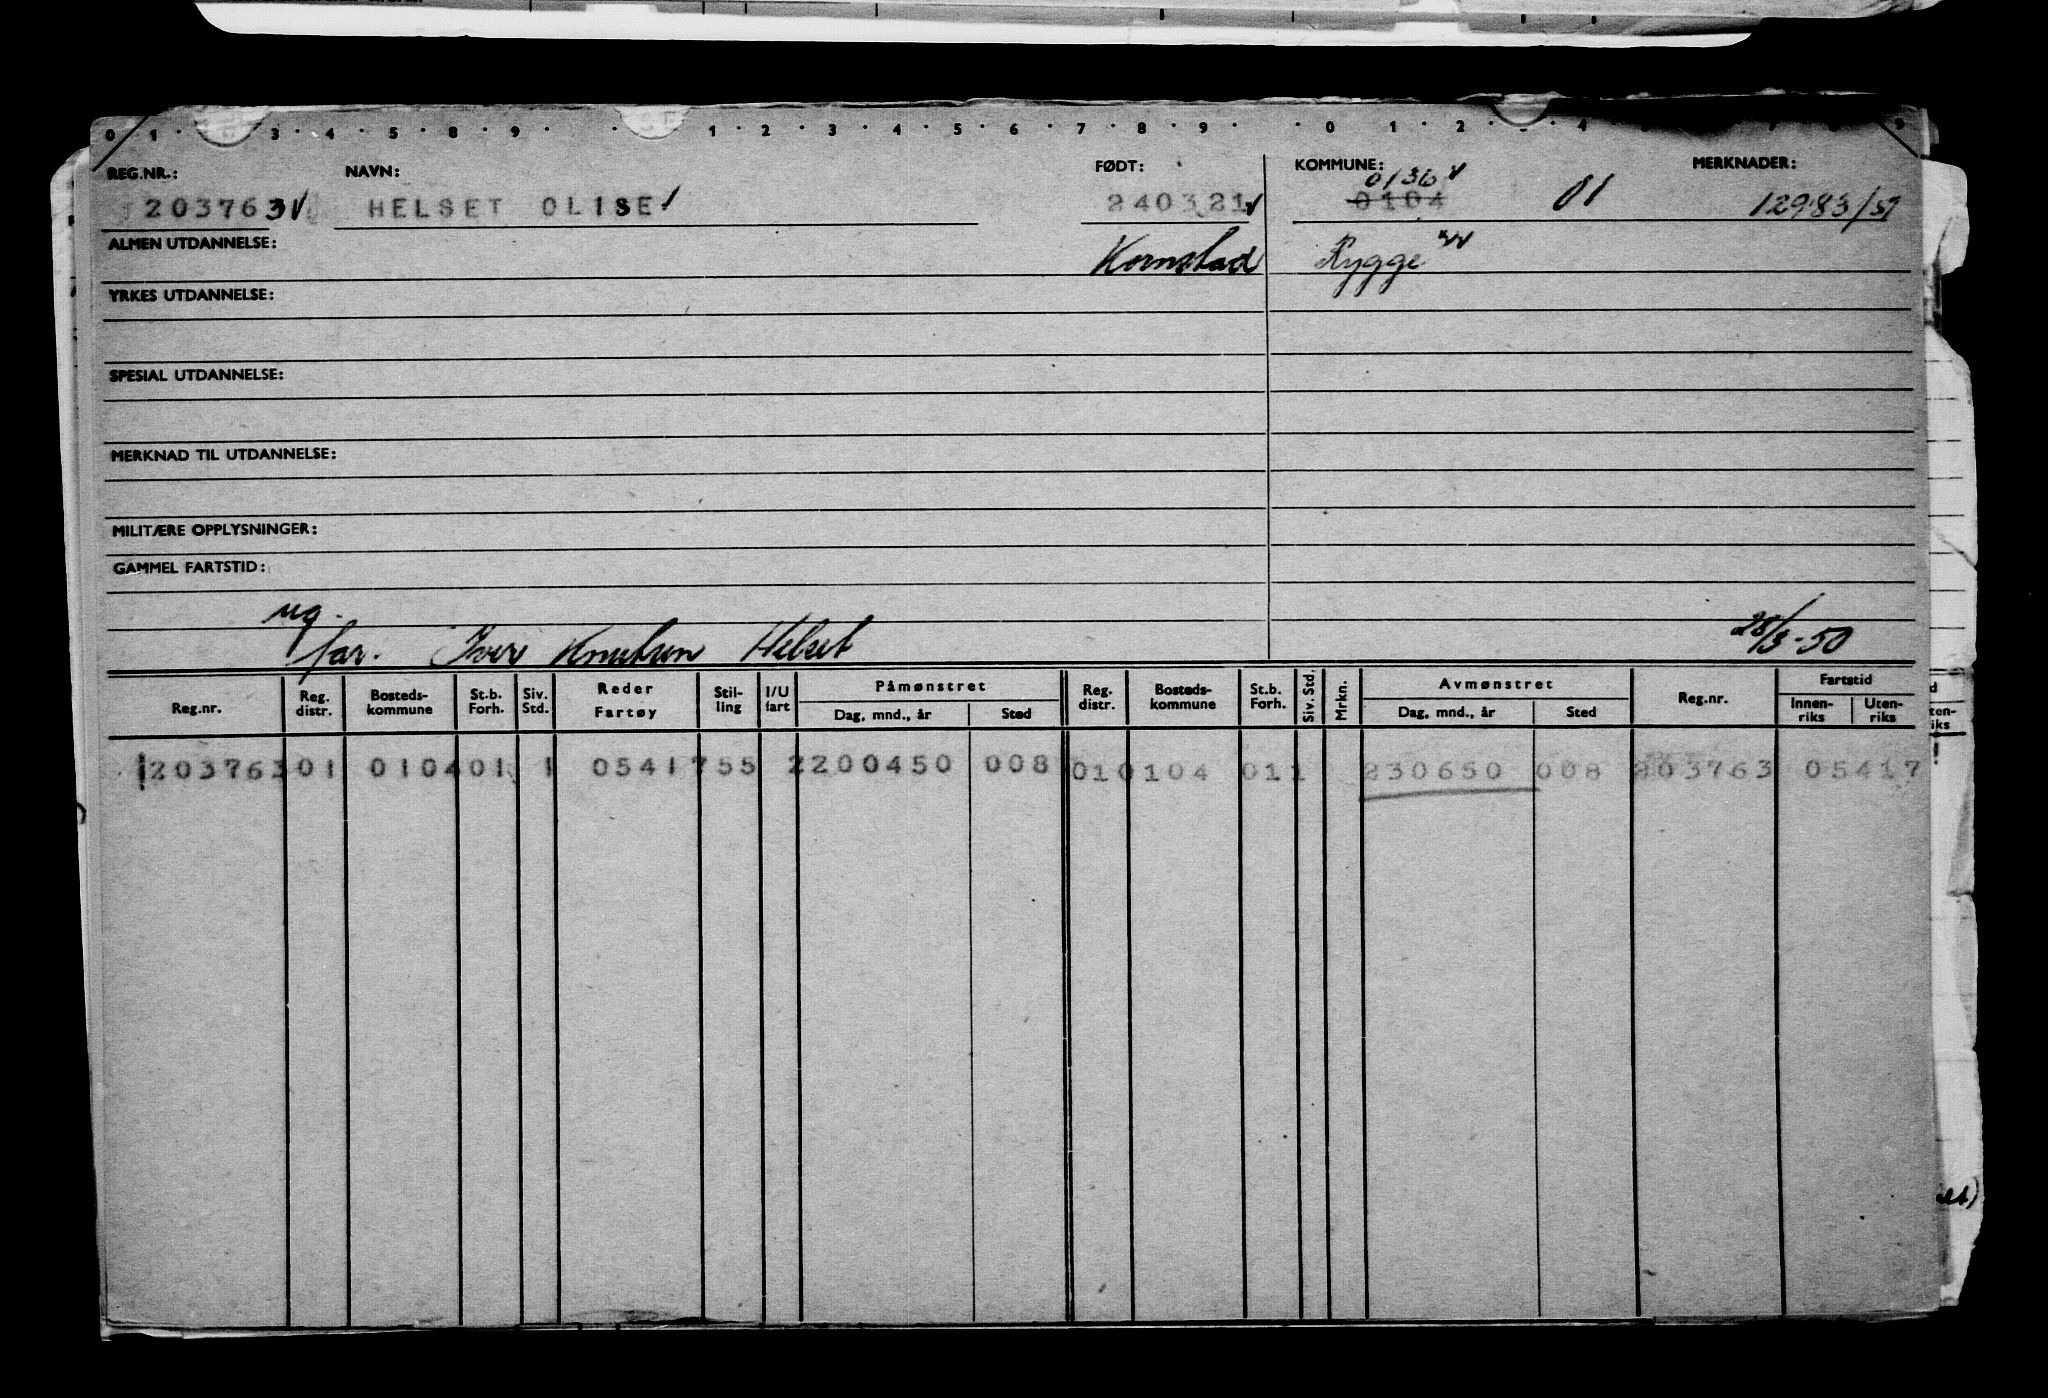 0 1 · 3 · 4 · 5 · 8 · 9 · 1 · 2 · 3 · 4 · 5 · 6 · 7 · 8 · 9 · 0 · 1 · 2 · 4 9
REG.NR.: NAVN: FØDT: KOMMUNE: MERKNADER:
0136
203763 HELSET OLISE 240321 0104 01 12983/51
ALMEN UTDANNELSE: Kornstad Rygge
YRKES UTDANNELSE:
SPESIAL UTDANNELSE:
MERKNAD TIL UTDANNELSE:
MILITÆRE OPPLYSNINGER:
GAMMEL FARTSTID:
ug.
far. Iver Knutsen Helset 28/3-50
Reg.nr. Reg. distr. Bosteds-kommune St.b. Forh. Siv. Std. Reder Fartøy Stil-ling I/U fart Påmønstret Dag, mnd., år Sted Reg. distr. Bosteds-kommune St.b. Forh. Siv. Std. Mrkn. Avmønstret Dag, mnd., år Sted Reg.nr. Fartstid Innen-riks Uten-riks
203763 01 0104 01 1 05417 55 2 200450 008 01 0104 01 1 230650 008 203763 05417